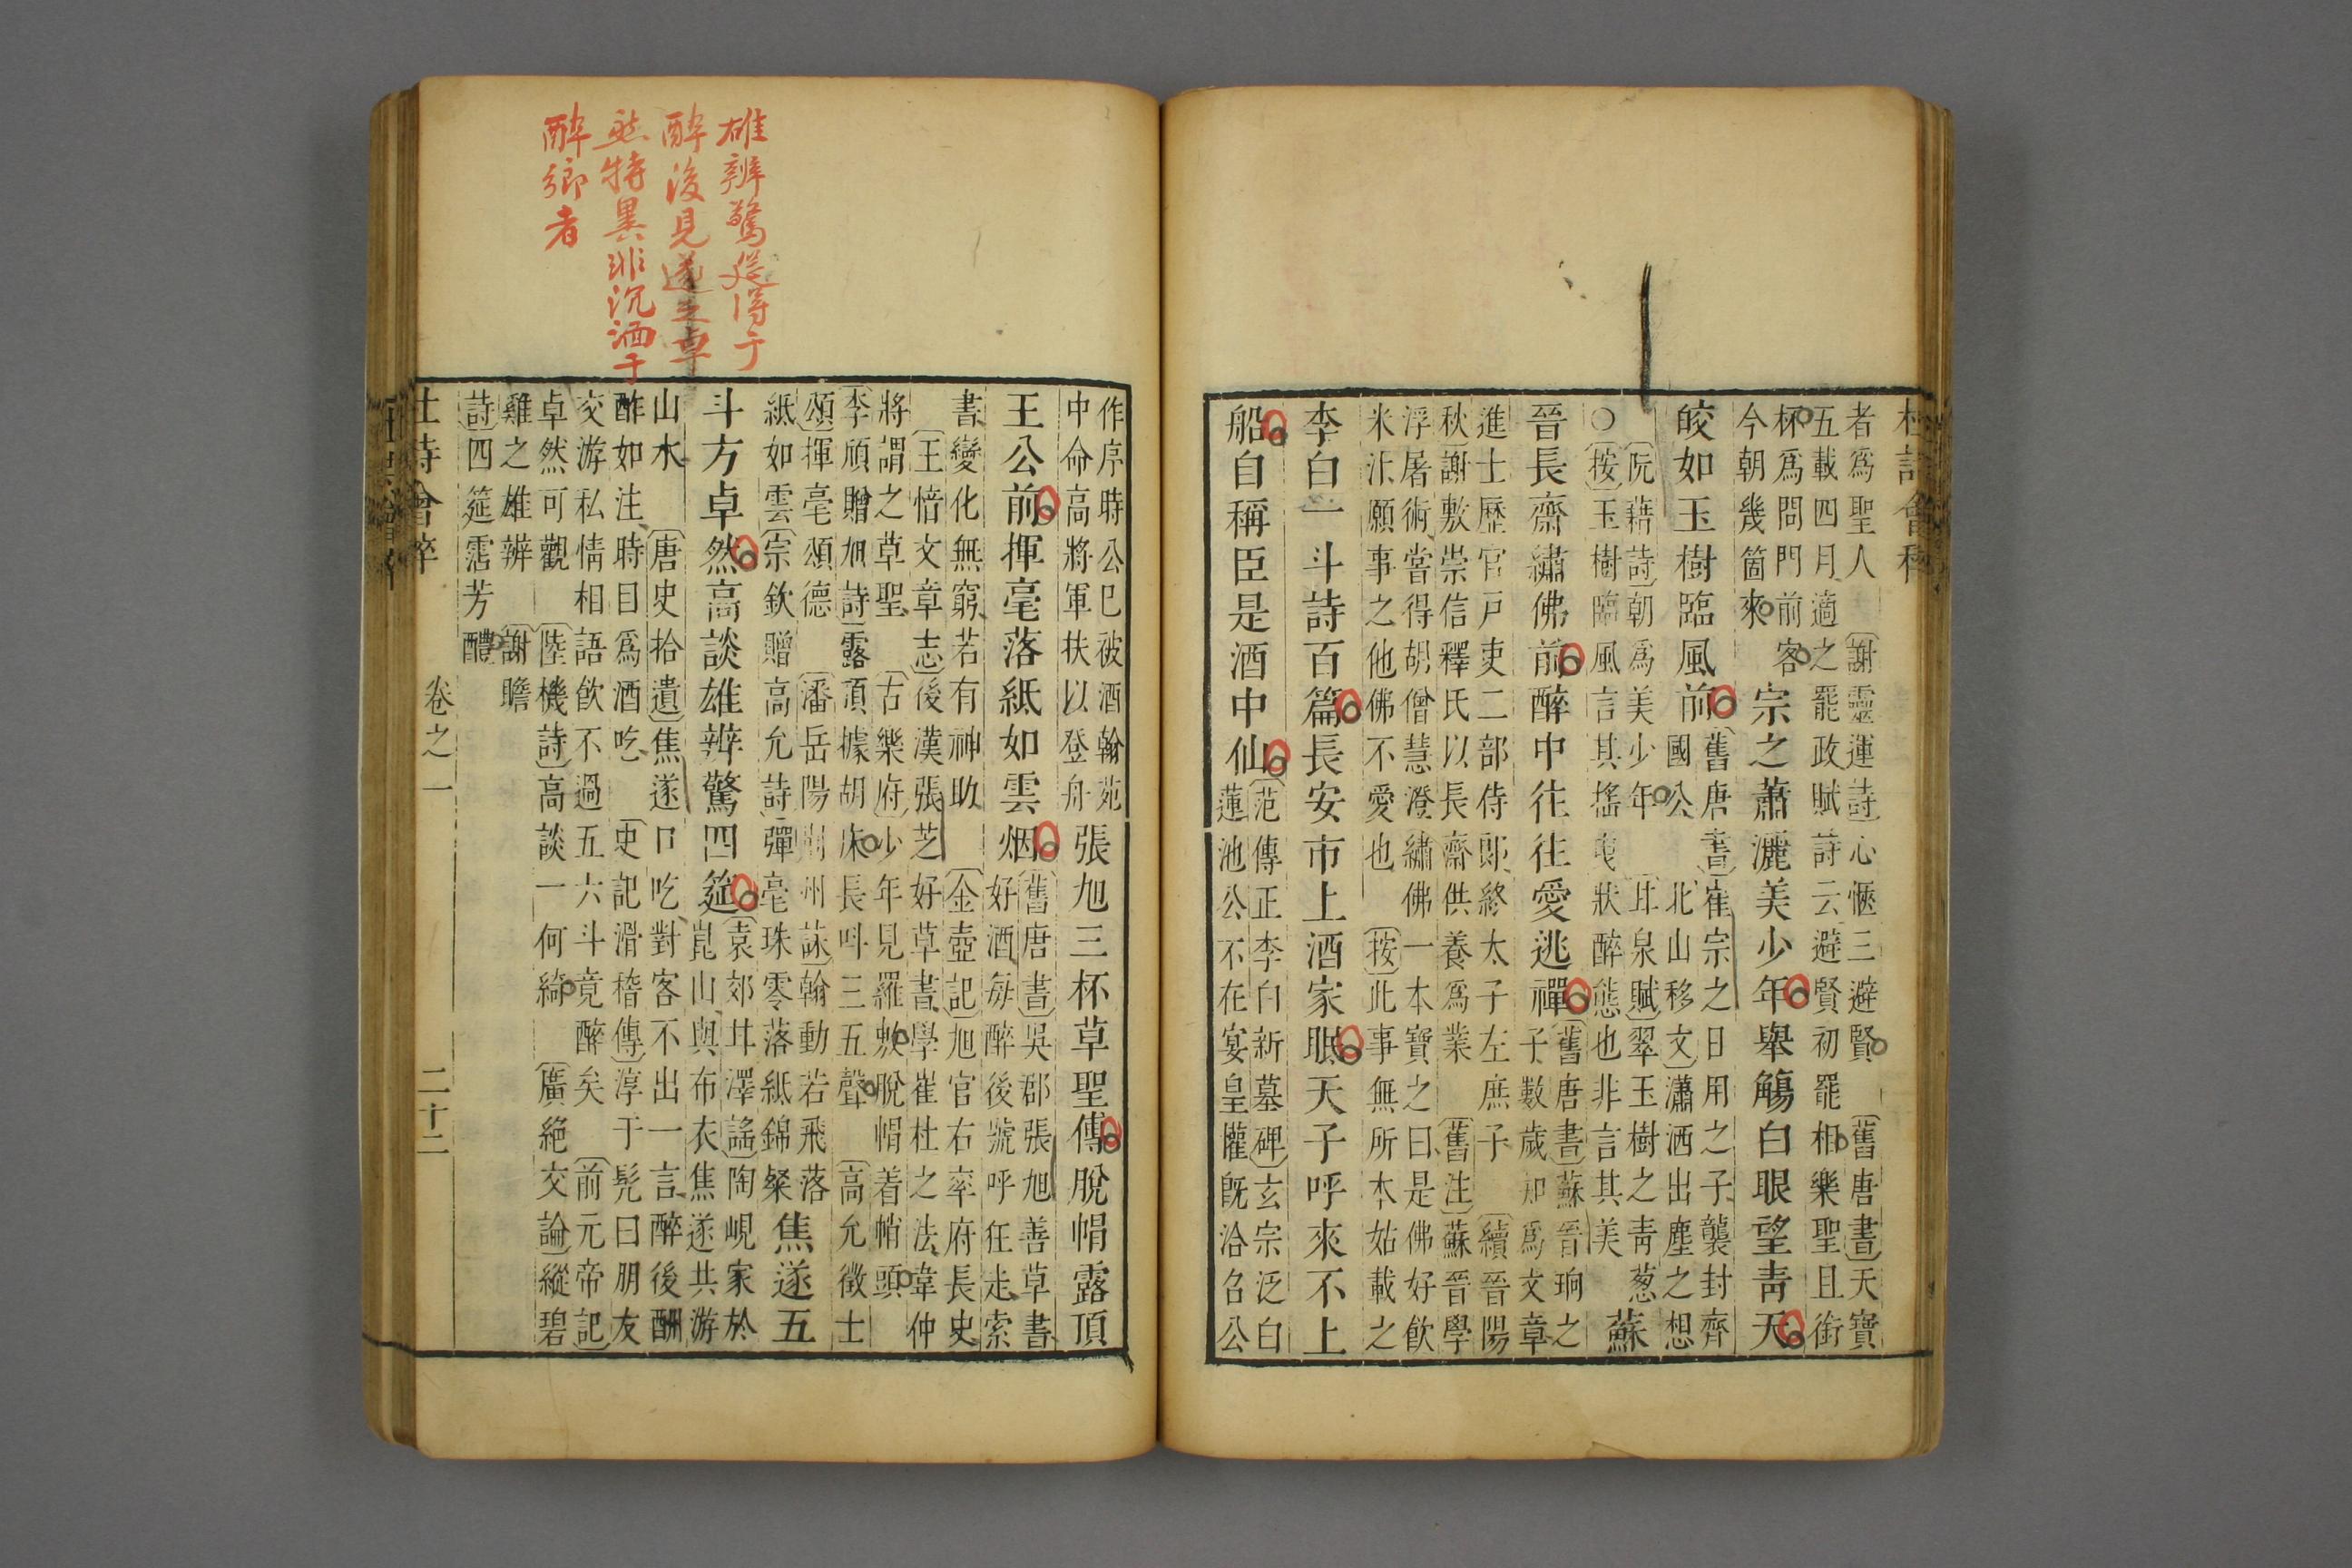 杜詩會稡
者爲聖人〔謝靈運詩〕心愜三避賢〔舊唐書〕天寶
五載四月適之罷政賦詩云避賢初罷相樂聖且銜
杯爲問門前客
今朝幾箇來
宗之蕭灑美少年舉觴白眼望青天
皎如玉樹臨風前
〔舊唐書〕崔宗之日用之子襲封齊
國公 北山移文〕瀟洒出塵之想
〔阮藉詩〕朝爲美少年 甘泉賦〕翠玉樹之青葱
○〔按〕玉樹臨風言其搖曳狀醉態也非言其美
蘇
晉長齋繡佛前醉中往往愛逃禪
〔舊唐書〕蘇晉珦之
子數歲知爲文章
進士歷官戶吏二部侍郎終太子左庶子〔續晉陽
秋〕謝敷崇信釋氏以長齋供養爲業〔舊注〕蘇晉學
浮屠術嘗得胡僧慧澄繡佛一本寶之曰是佛好飲
米汁願事之他佛不愛也〔按〕此事無所本姑載之
李白一斗詩百篇長安市上酒家眠天子呼來不上
船自稱臣是酒中仙
〔范傳正李白新墓碑〕玄宗泛白
蓮池公不在宴皇懽旣洽召公
雄辨驚筵得于
醉後見遂之卓
然特異非沉湎于
醉鄉者
作序時公已被酒翰苑
中命高將軍扶以登舟
張旭三杯草聖傳脫帽露頂
王公前揮毫落紙如雲烟
〔舊唐書〕吳郡張旭善草書
好酒每醉後號呼狂走索
書變化無窮若有神助〔金壺記〕旭官右率府長史
〔王愔文章志〕後漢張芝好草書學崔杜之法韋仲
將謂之草聖〔古樂府〕少年見羅敷脫帽着帩頭
〔李頎贈旭詩〕露頂據胡床長呌三五聲〔高允徵士
頌〕揮毫頌德〔潘岳陽荆州誄〕翰動若飛落
紙如雲〔宗欽贈高允詩〕彈毫珠零落紙錦粲
焦遂五
斗方卓然高談雄辨驚四筵
〔袁郊甘澤謠〕陶峴家於
崑山與布衣焦遂共游
山水〔唐史拾遺〕焦遂口吃對客不出一言醉後酬
酢如注時目爲酒吃〔史記滑稽傳〕淳于髡曰朋友
交游私情相語飲不過五六斗竟醉矣〔前元帝記
卓然可觀〔陸機詩〕高談一何綺〔廣絶交論〕縱碧
雞之雄辨〔謝瞻
詩〕四筵霑芳醴
杜詩會稡 卷之一 二十二